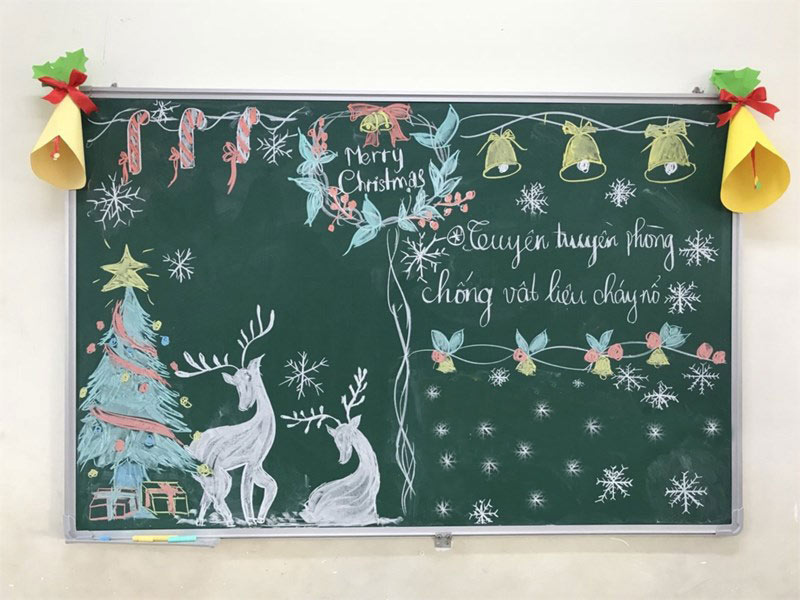 Merry
Christmas
Tuyên truyền phòng
chống vật liệu cháy nổ